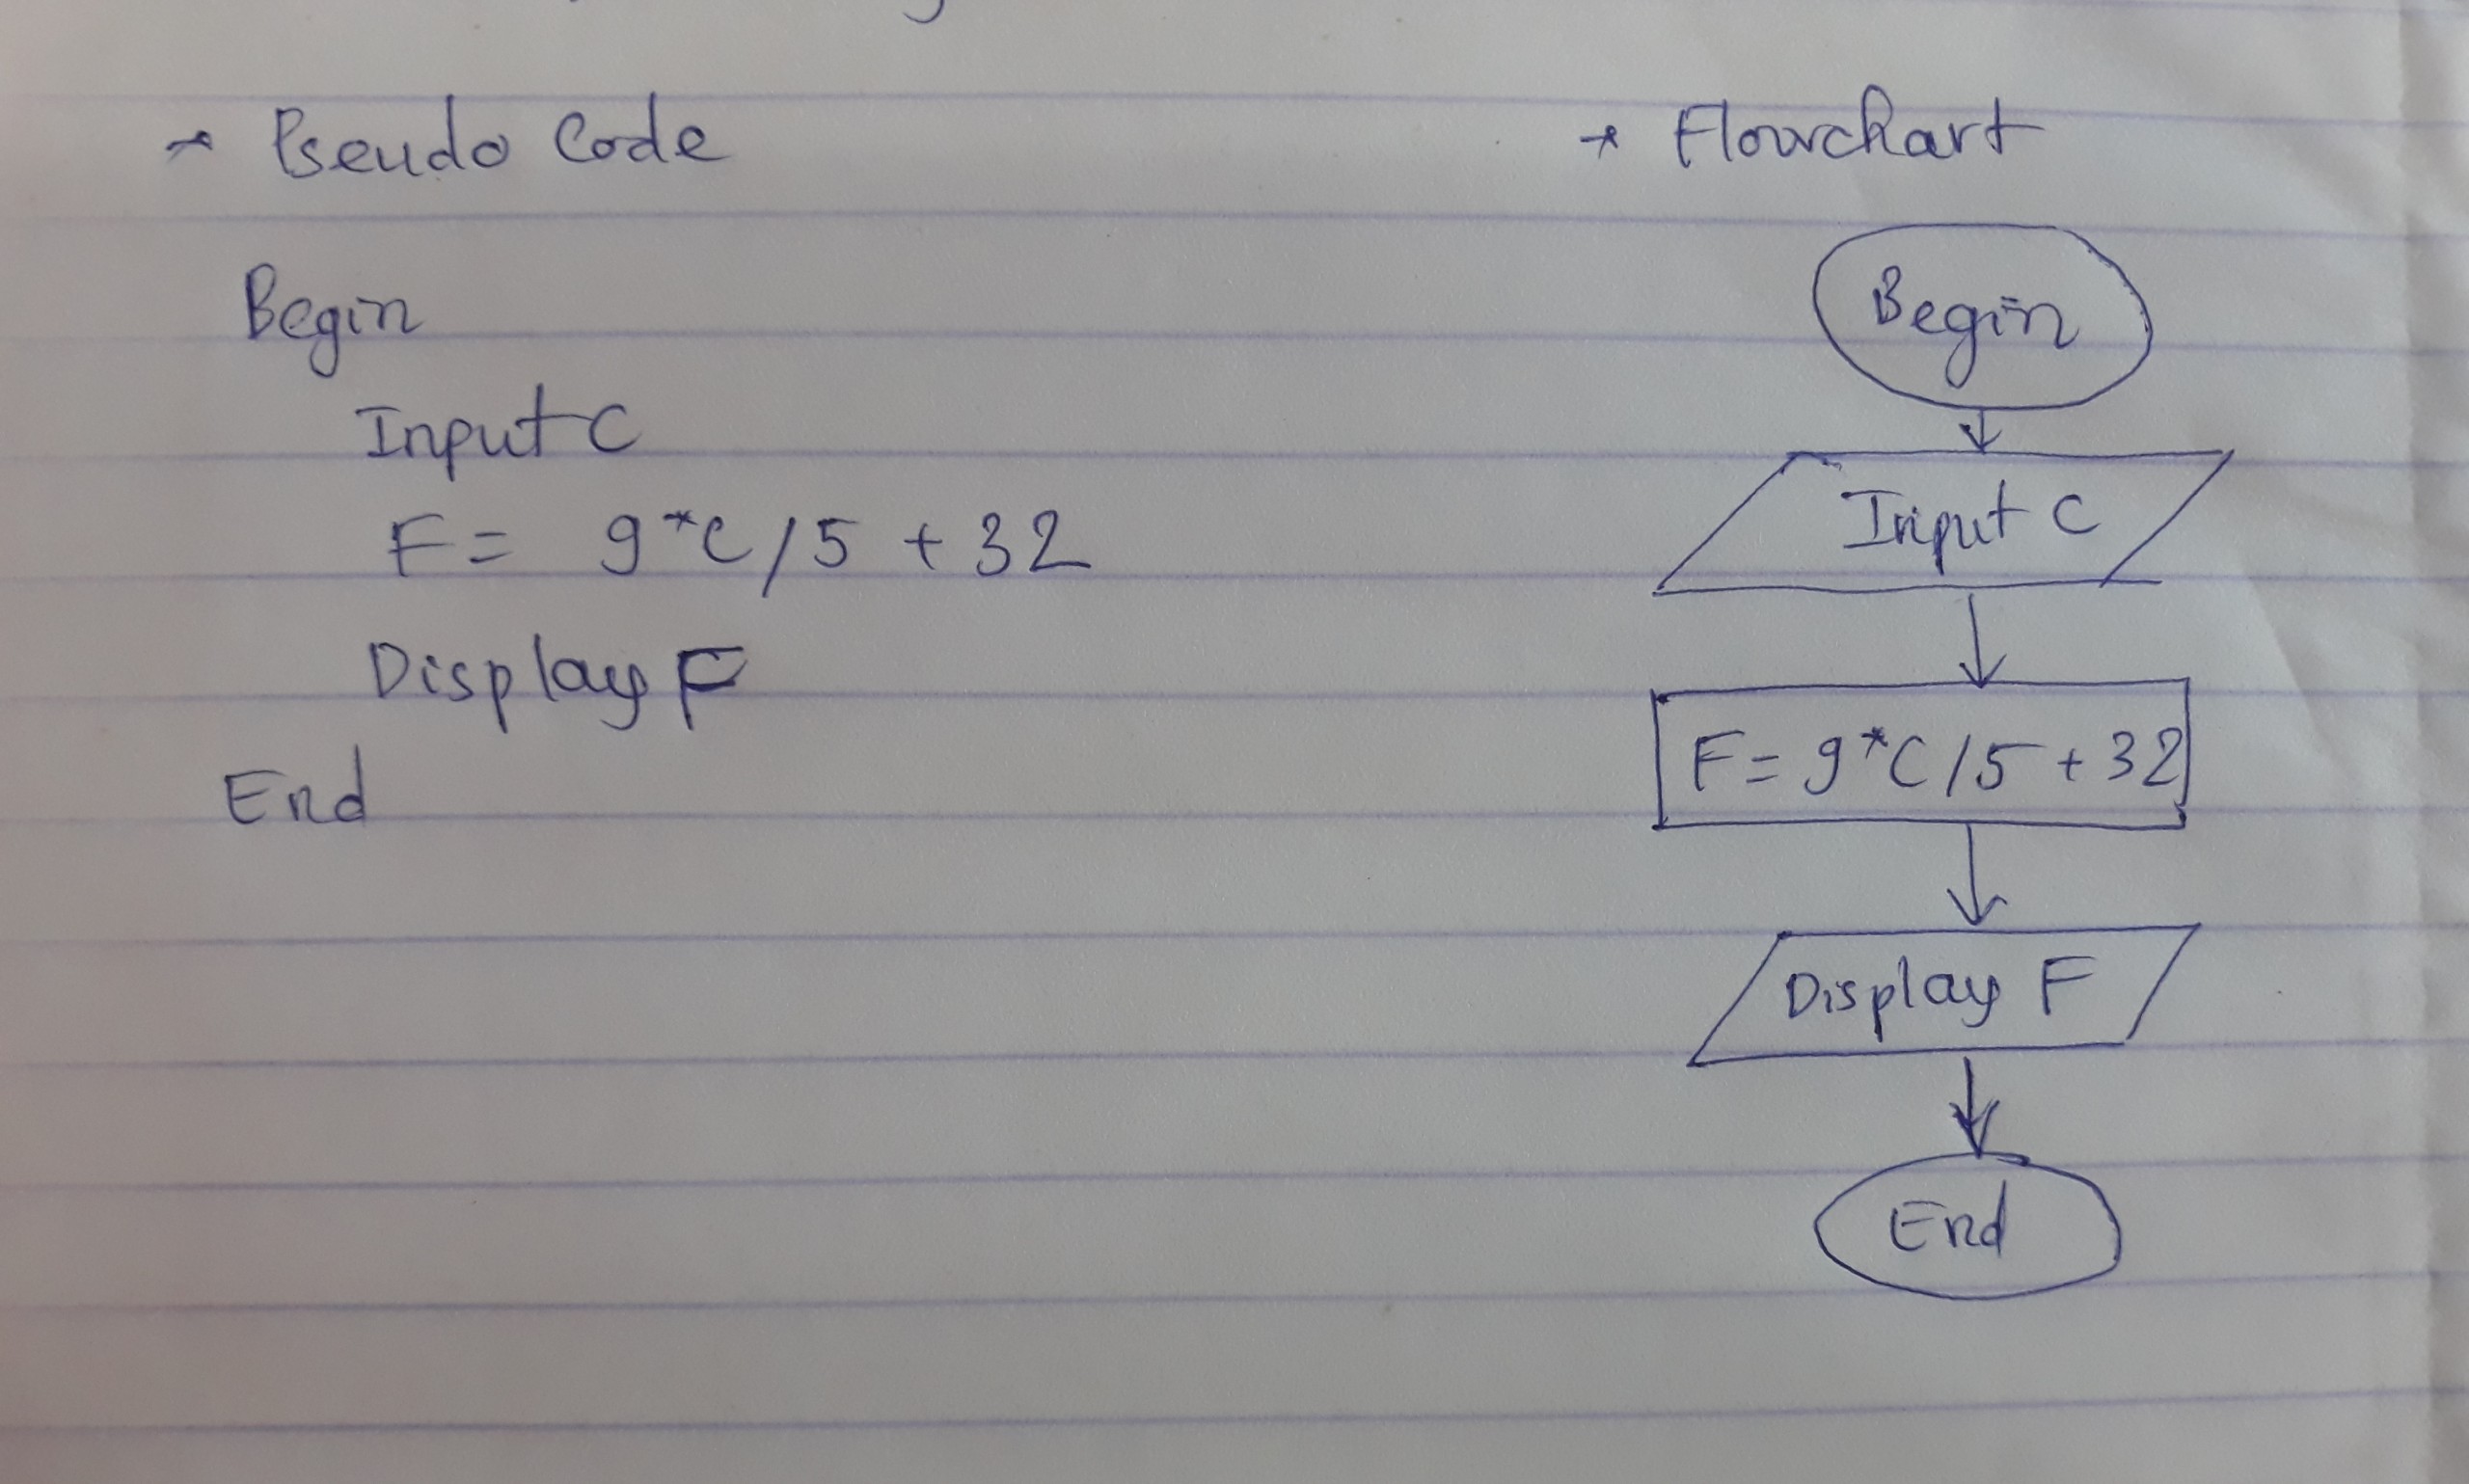 * Pseudo Code
Begin
Input C
F = 9*C/5 + 32
Display F
End
* Flowchart
Begin
Input C
F = 9*C/5 + 32
Display F
End